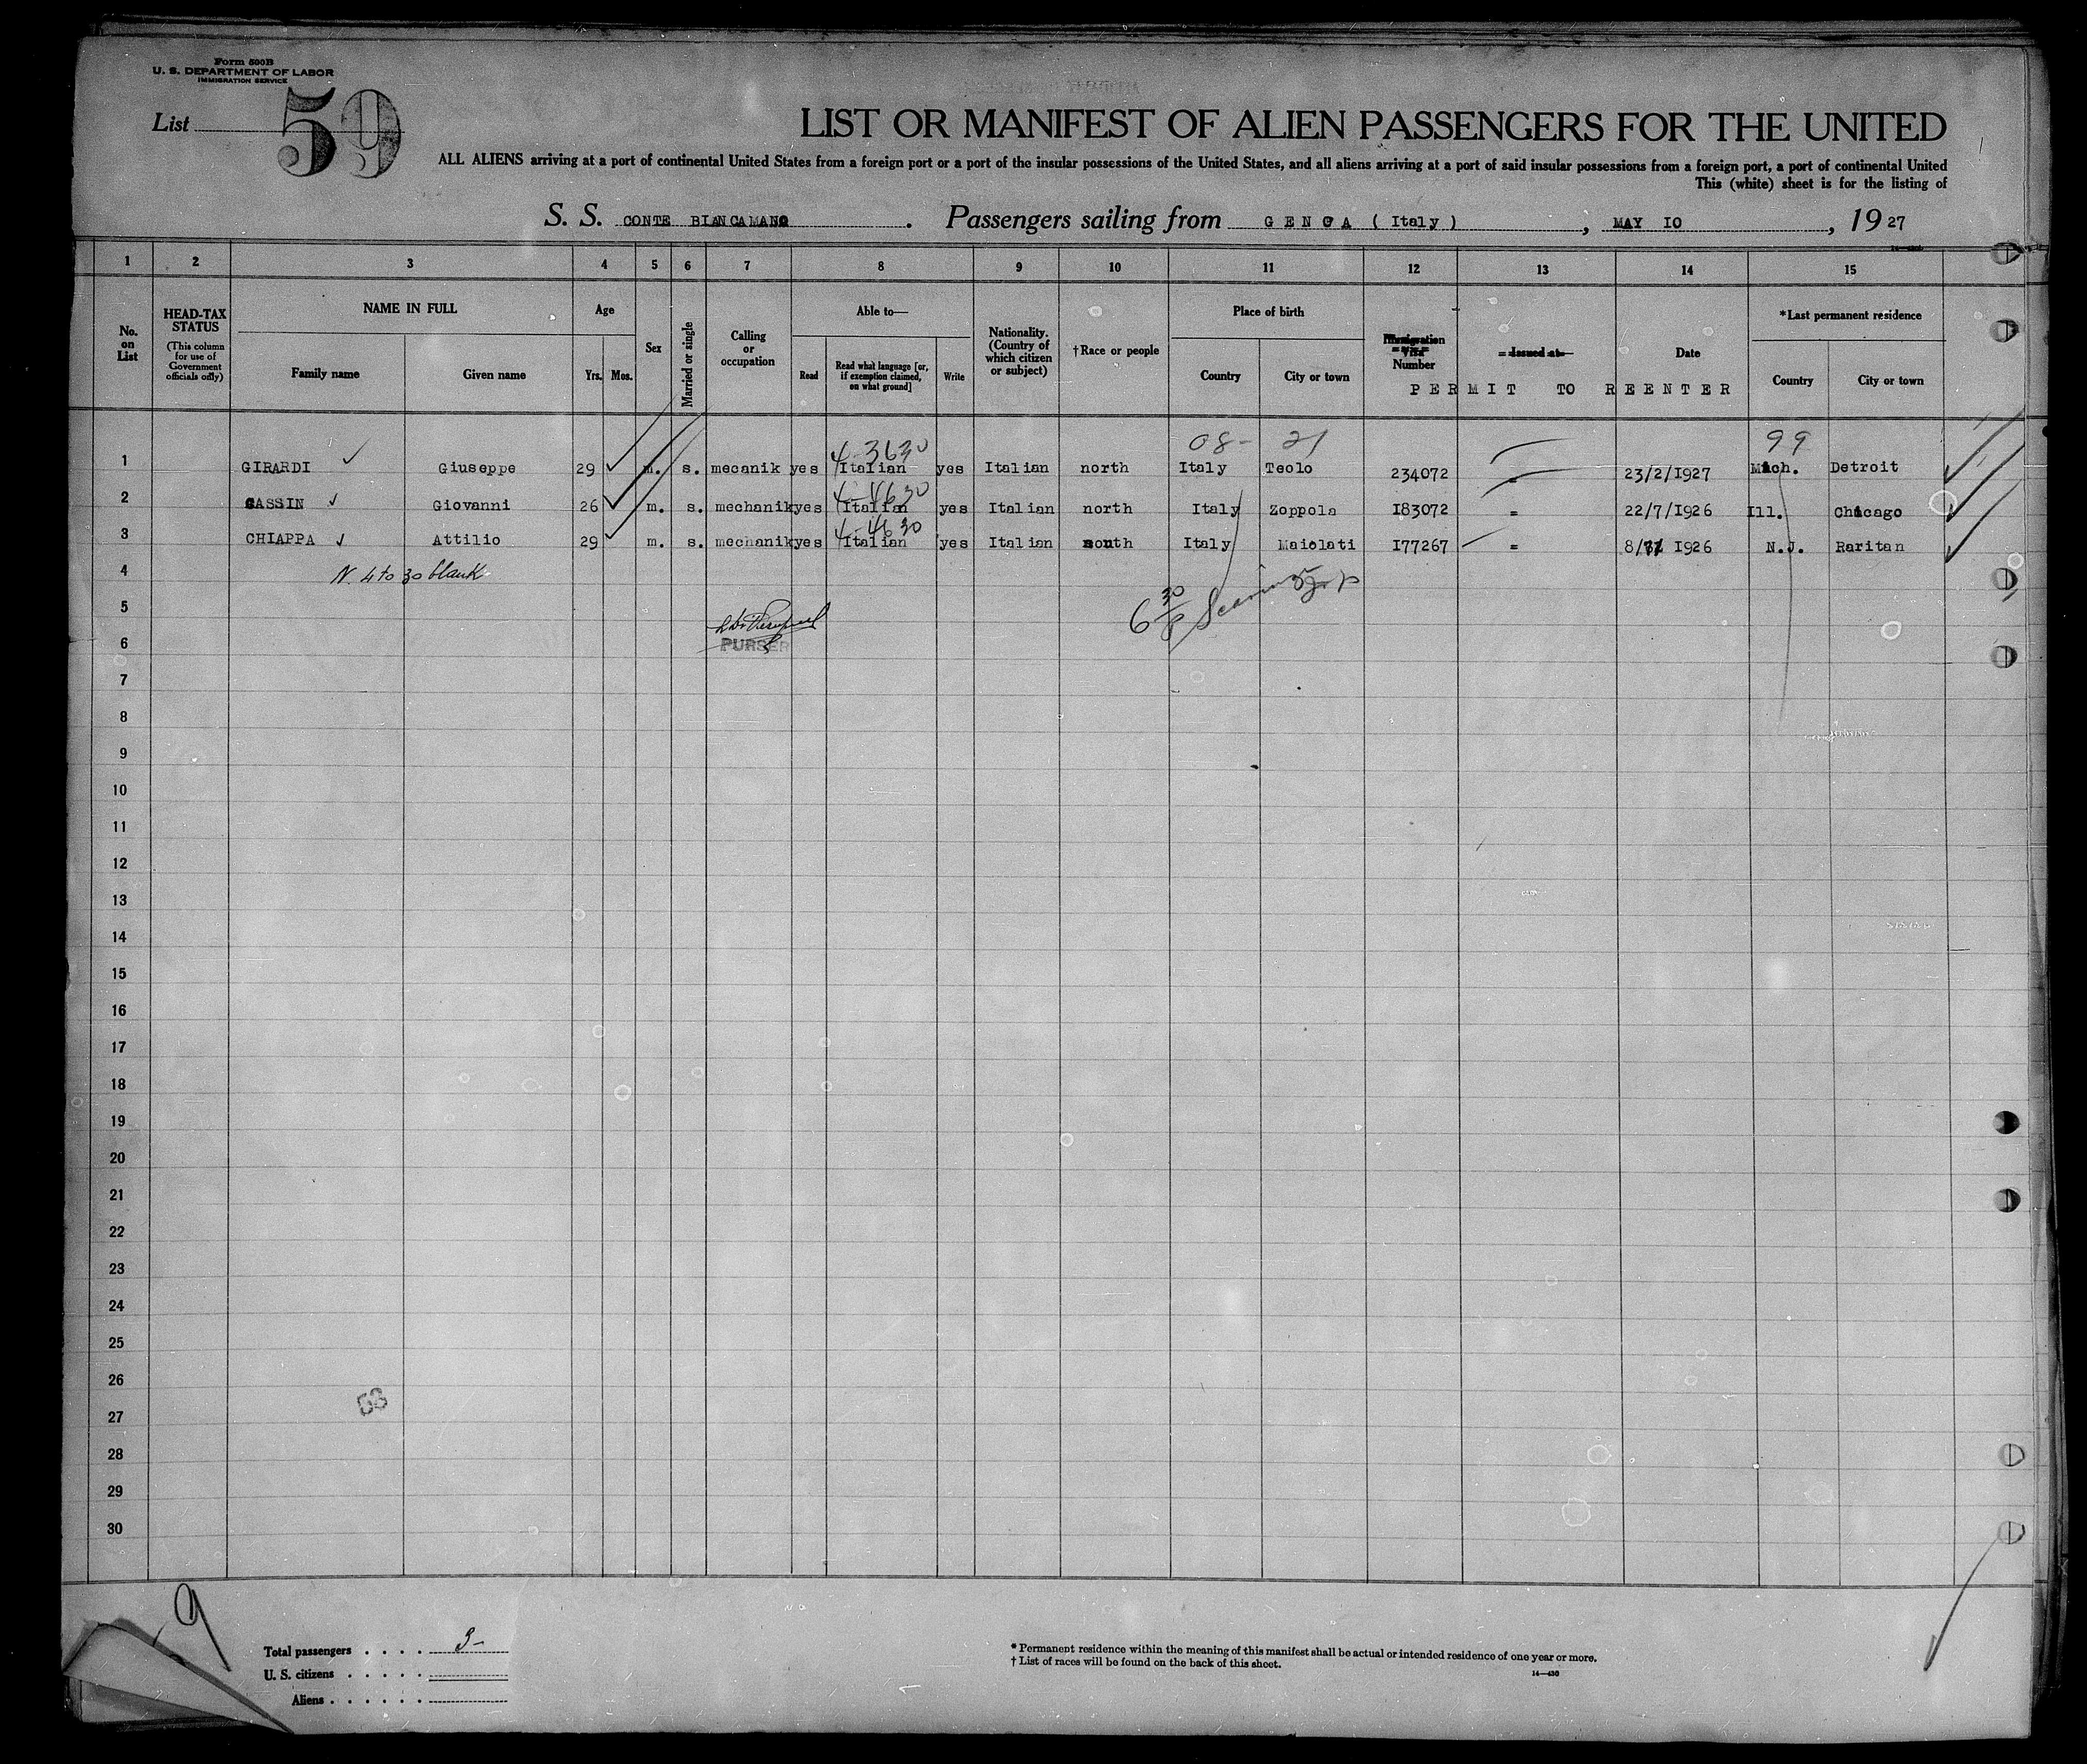 Form 500B
U. S. DEPARTMENT OF LABOR
IMMIGRATION SERVICE
List 59
LIST OR MANIFEST OF ALIEN PASSENGERS FOR THE UNITED
ALL ALIENS arriving at a port of continental United States from a foreign port or a port of the insular possessions of the United States, and all aliens arriving at a port of said insular possessions from a foreign port, a port of continental United
This (white) sheet is for the listing of
S. S. CONTE BIANCAMANO . Passengers sailing from GENOA ( Italy ) , MAY IO , 19 27
1 2 3 4 5 6 7 8 9 10 11 12 13 14 15
No. on List
HEAD-TAX STATUS
(This column for use of Government officials only)
NAME IN FULL
Family name
Given name
Age
Yrs. Mos.
Sex
Married or single
Calling or occupation
Able to—
Read
Read what language [or, if exemption claimed, on what ground]
Write
Nationality. (Country of which citizen or subject)
†Race or people
Place of birth
Country
City or town
Immigration Visa Number
Issued at
Date
PERMIT TO REENTER
*Last permanent residence
Country
City or town
08- 21 99
4-3630
1 GIRARDI Giuseppe 29 m. s. mecanik yes Italian yes Italian north Italy Teolo 234072 = 23/2/1927 Mich. Detroit
4-4630
2 CASSIN Giovanni 26 m. s. mechanik yes Italian yes Italian north Italy Zoppola I83072 = 22/7/1926 Ill. Chicago
4-4630
3 CHIAPPA Attilio 29 m. s. mechanik yes Italian yes Italian south Italy Maiolati I77267 = 8/ 1926 N.J. Raritan
4 N. 4 to 30 blank
5
6 PURSER
7
8
9
10
11
12
13
14
15
16
17
18
19
20
21
22
23
24
25
26
27
28
29
30
53
9
Total passengers . . . . 3-
U. S. citizens . . . . .
Aliens . . . . . .
* Permanent residence within the meaning of this manifest shall be actual or intended residence of one year or more.
† List of races will be found on the back of this sheet.
14—430